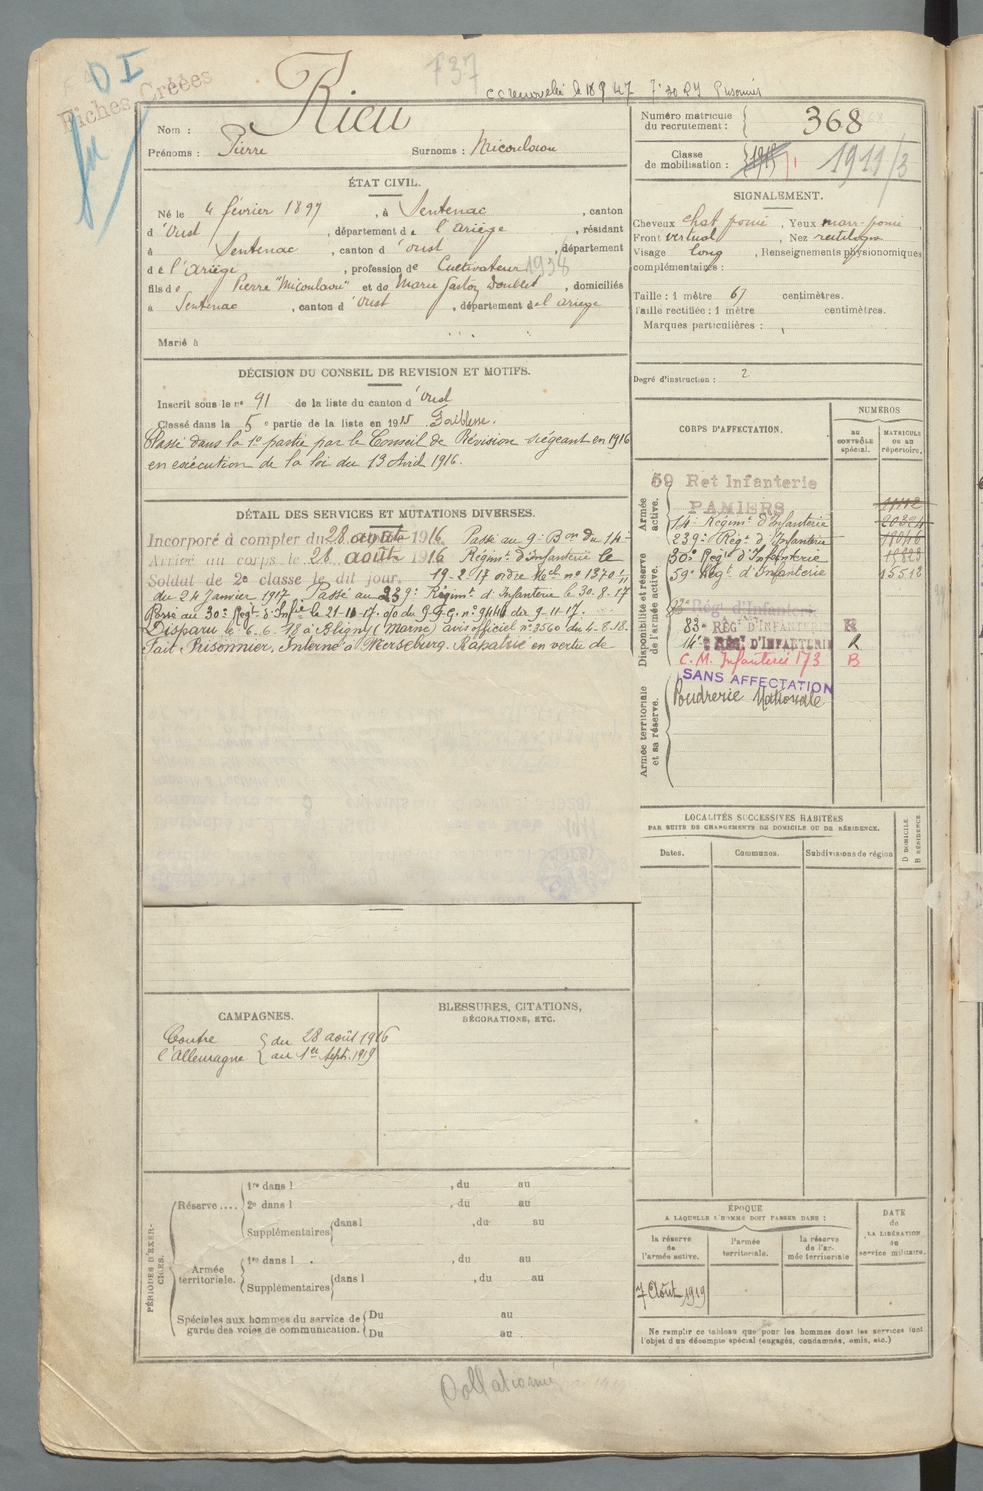 D I
Fiches Créées
737
Nom : Rieu
Prénoms : Pierre Surnoms : Micoulaou
Numéro matricule du recrutement : 368
Classe de mobilisation : 1911/3
ÉTAT CIVIL.
Né le 4 février 1897, à Sentenac, canton
d'Oust, département de l'Ariège, résidant
à Sentenac, canton d'Oust, département
de l'Ariège, profession de Cultivateur 1938
fils de Pierre "Micoulaou" et de Marie Doublet, domiciliés
à Sentenac, canton d'Oust, département de l'ariège
Marié à
SIGNALEMENT.
Cheveux chat foncé, Yeux marr-foncé,
Front vertical, Nez rectiligne
Visage long, Renseignements physionomiques
complémentaires :
Taille : 1 mètre 67 centimètres.
Taille rectifiée : 1 mètre centimètres.
Marques particulières :
Degré d'instruction : 2
DÉCISION DU CONSEIL DE REVISION ET MOTIFS.
Inscrit sous le n° 91 de la liste du canton d'Oust
Classé dans la 5e partie de la liste en 1915 Faiblesse.
Classé dans la 1e partie par le Conseil de Révision siégeant en 1916
en exécution de la loi du 13 Avril 1916.
DÉTAIL DES SERVICES ET MUTATIONS DIVERSES.
Incorporé à compter du 28 août 1916 Passé au 9e Bon du 14e
Arrivé au corps le 28 août 1916 Régimt d'Infanterie le
Soldat de 2e classe le dit jour. 19-2-17 ordre Mel no 1370-1/11
du 24 janvier 1917 Passé au 239e Régimt d'Infanterie le 30-8-17
Passé au 30e Regt d'Infie le 21-10-17 - o/o du G.Q.G. no 9446 du 9-11-17.
Disparu le 6-6-18 à Bligny (Marne) avis officiel no 3560 du 4-8-18.
Fait Prisonnier, Interné à Merseburg. Rapatrié en vertu de
CORPS D'AFFECTATION.
NUMÉROS
AU CONTRÔLE spécial.
MATRICULE OU AU répertoire.
Armée active.
59 Ret Infanterie
PAMIERS
14e Régimt d'Infanterie
239e Régt d'Infanterie
30e Regt d'Infanterie
59e Regt d'Infanterie 15512
Disponibilité et réserve de l'armée active.
Rég. d'Infanterie
83e RÉGT D'INFANTERIE R
14e RÉGT D'INFANTERIE R
C.M. Infanterie 173 B
SANS AFFECTATION
Armée territoriale et sa réserve.
Poudrerie Nationale
LOCALITÉS SUCCESSIVES HABITÉES
PAR SUITE DE CHANGEMENTS DE DOMICILE OU DE RÉSIDENCE.
Dates. Communes. Subdivisions de région D DOMICILE R RÉSIDENCE
CAMPAGNES.
Contre l'Allemagne { du 28 août 1916
au 1er Sept. 1919
BLESSURES, CITATIONS,
DÉCORATIONS, ETC.
PÉRIODES D'EXERCICES.
Réserve....
1re dans l , du au
2e dans l , du au
Supplémentaires { dans l , du au
Armée territoriale.
1re dans l . , du au
Supplémentaires { dans l , du au
Spéciales aux hommes du service de
garde des voies de communication. { Du au
Du au
ÉPOQUE
A LAQUELLE L'HOMME DOIT PASSER DANS :
la réserve de l'armée active.
l'armée territoriale.
la réserve de l'armée territoriale
DATE de LA LIBÉRATION du service militaire.
7 Août 1919
Ne remplir ce tableau que pour les hommes dont les services font
l'objet d'un décompte spécial (engagés, condamnés, omis, etc.)
Collationné